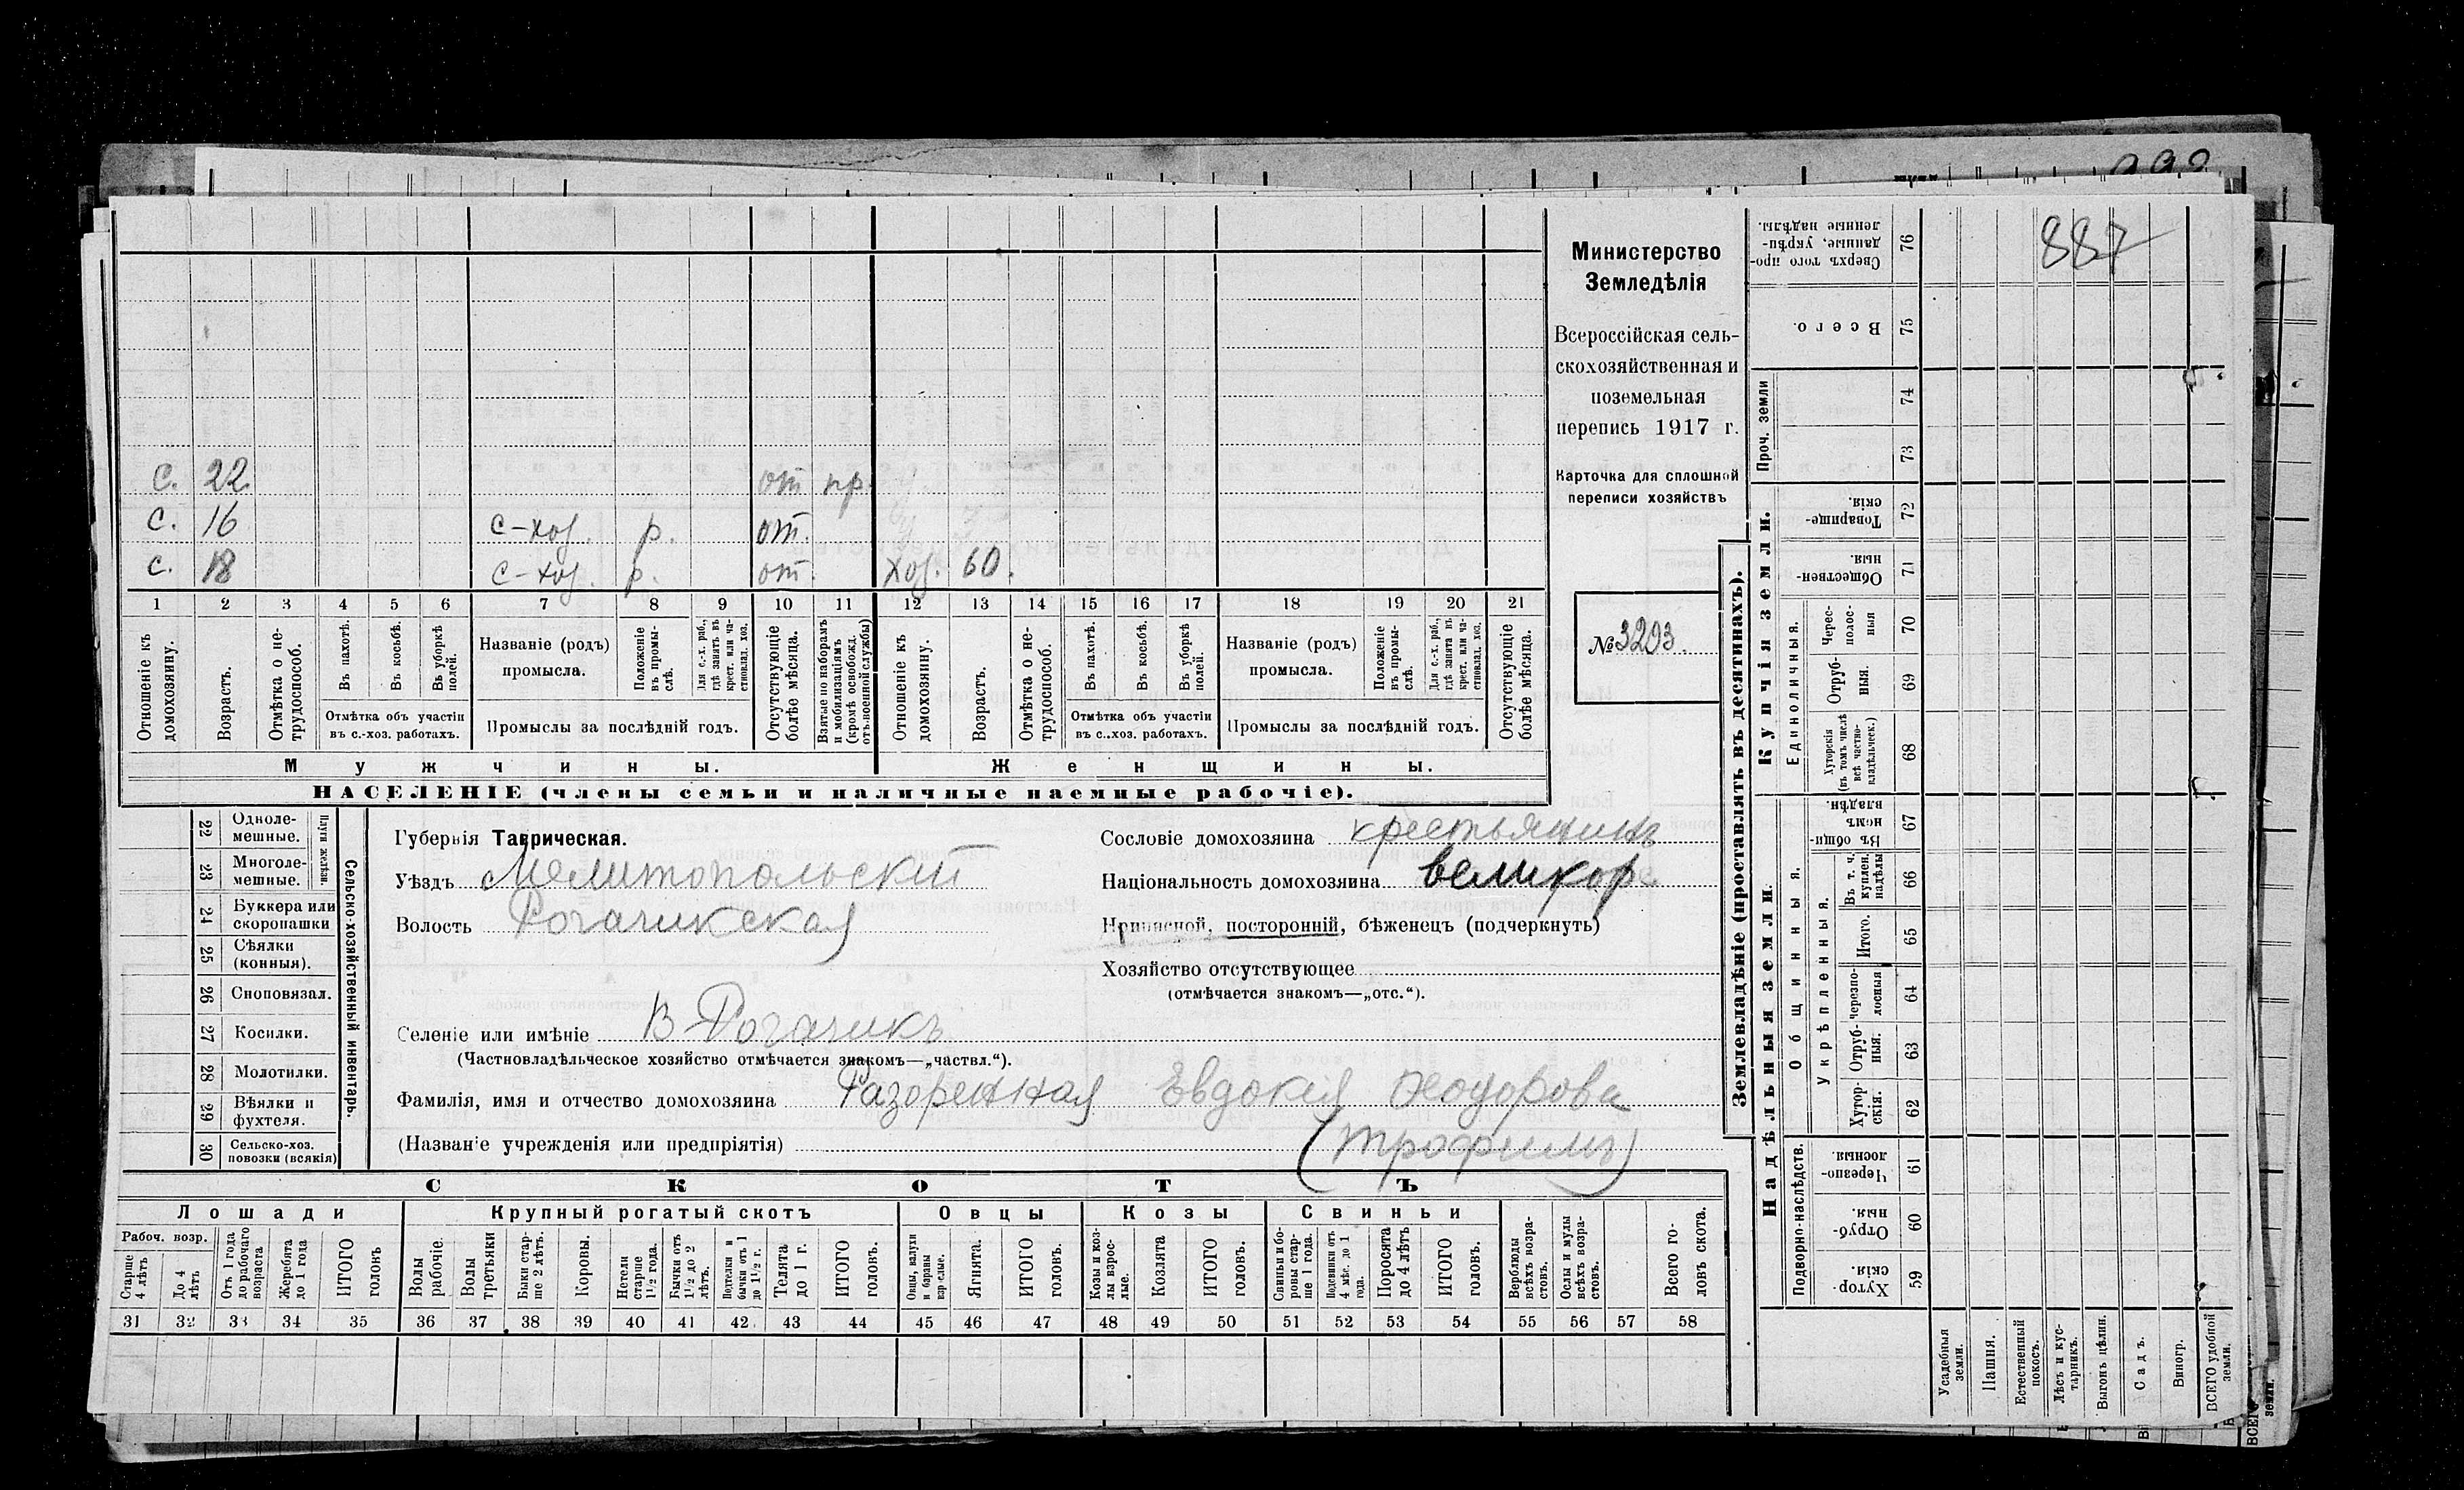 887
с. 22. от пр.
с. 16 с-хоз. р. от.
с. 18 с-хоз. р. от. хоз. 60.
1 2 3 4 5 6 7 8 9 10 11 12 13 14 15 16 17 18 19 20 21
Отношеніе къ домохозяину.
Возрастъ.
Отмѣтка о нетрудоспособ.
Въ пахотѣ.
Въ косьбѣ.
Въ уборкѣ полей.
Отмѣтка объ участіи
въ с.-хоз. работахъ.
Названіе (родъ)
промысла.
Положеніе въ промыслѣ.
Для с.-х. раб., гдѣ занятъ въ крест. или частновлад. хоз.
Промыслы за послѣдній годъ.
Отсутствующіе болѣе мѣсяца.
Взятые по наборамъ и мобилизаціямъ (кромѣ освобожд. отъ военной службы)
Отношеніе къ домохозяину.
Возрастъ.
Отмѣтка о нетрудоспособ.
Въ пахотѣ.
Въ косьбѣ.
Въ уборкѣ полей.
Отмѣтка объ участіи
въ с.-хоз. работахъ.
Названіе (родъ)
промысла.
Положеніе въ промыслѣ.
Для с.-х. раб., гдѣ занята въ крест. или частновлад. хоз.
Промыслы за послѣдній годъ.
Отсутствующіе болѣе мѣсяца.
Мужчины. Женщины.
НАСЕЛЕНІЕ (члены семьи и наличные наемные рабочіе).
Министерство
Земледѣлія
Всероссійская сель-
скохозяйственная и
поземельная
перепись 1917 г.
Карточка для сплошной
переписи хозяйствъ
№ 3203.
22 Одноле-
мешные.
23 Многоле-
мешные.
Плуги желѣзн.
24 Буккера или
скоропашки
25 Сѣялки
(конныя).
26 Сноповязал.
27 Косилки.
28 Молотилки.
29 Вѣялки и
фухтеля.
30 Сельско-хоз.
повозки (всякія)
Сельско-хозяйственный инвентарь.
Губернія Таврическая.
Уѣздъ Мелитопольскій
Волость Рогачикская
Селеніе или имѣніе В-Рогачикъ
(Частновладѣльческое хозяйство отмѣчается знакомъ—„частвл.“).
Фамилія, имя и отчество домохозяина Разоренная Евдокія Ѳеодорова
(Названіе учрежденія или предпріятія) (Трофимъ)
Сословіе домохозяина крестьянинъ
Національность домохозяина великор
Приписной, посторонній, бѣженецъ (подчеркнуть)
Хозяйство отсутствующее
(отмѣчается знакомъ—„отс.“).
СКОТЪ
Лошади Крупный рогатый скотъ Овцы Козы Свиньи
Рабоч. возр.
Старше 4 лѣтъ
До 4 лѣтъ
Отъ 1 года до рабочаго возраста
Жеребята до 1 года
ИТОГО головъ
Волы рабочіе.
Волы третьяки
Быки старше 2 лѣтъ.
Коровы.
Нетели старше 1½ года.
Бычки отъ 1½ до 2 лѣтъ.
Подтелки и бычки отъ 1 до 1½ г.
Телята до 1 г.
ИТОГО головъ.
Овцы, валухи и бараны взрослые.
Ягнята.
ИТОГО головъ.
Козы и козлы взрослые.
Козлята
ИТОГО головъ.
Свиньи и боровы старше 1 года.
Подсвинки отъ 4 мѣс. до 1 года.
Поросята до 4 лѣтъ
ИТОГО головъ.
Верблюды всѣхъ возрастовъ.
Ослы и мулы всѣхъ возрастовъ.
Всего головъ скота.
31 32 33 34 35 36 37 38 39 40 41 42 43 44 45 46 47 48 49 50 51 52 53 54 55 56 57 58
Землевладѣніе (проставлять въ десятинахъ).
Надѣльныя земли. Купчія земли. Проч. земли
Подворно-наслѣдств. Общинныя. Единоличныя.
Укрѣпленныя.
Сверхъ того проданные, укрѣпленные надѣлы. 76
Всего. 75
74
73
Товарищескія 72
Общественныя 71
Чересполосныя 70
Отрубныя. 69
Хуторскія (въ томъ числѣ всѣ частновладѣльческ.) 68
Въ общинномъ владѣн. 67
Въ т. ч. куплен. надѣлы 66
Итого. 65
Черезполосныя 64
Отрубныя. 63
Хуторскія. 62
Черезполосныя. 61
Отрубныя. 60
Хуторскія. 59
Усадебныя земли.
Пашня.
Естественный покосъ.
Лѣсъ и кустарникъ.
Выгонъ цѣлин.
Садъ.
Виногр.
ВСЕГО удобной земли.